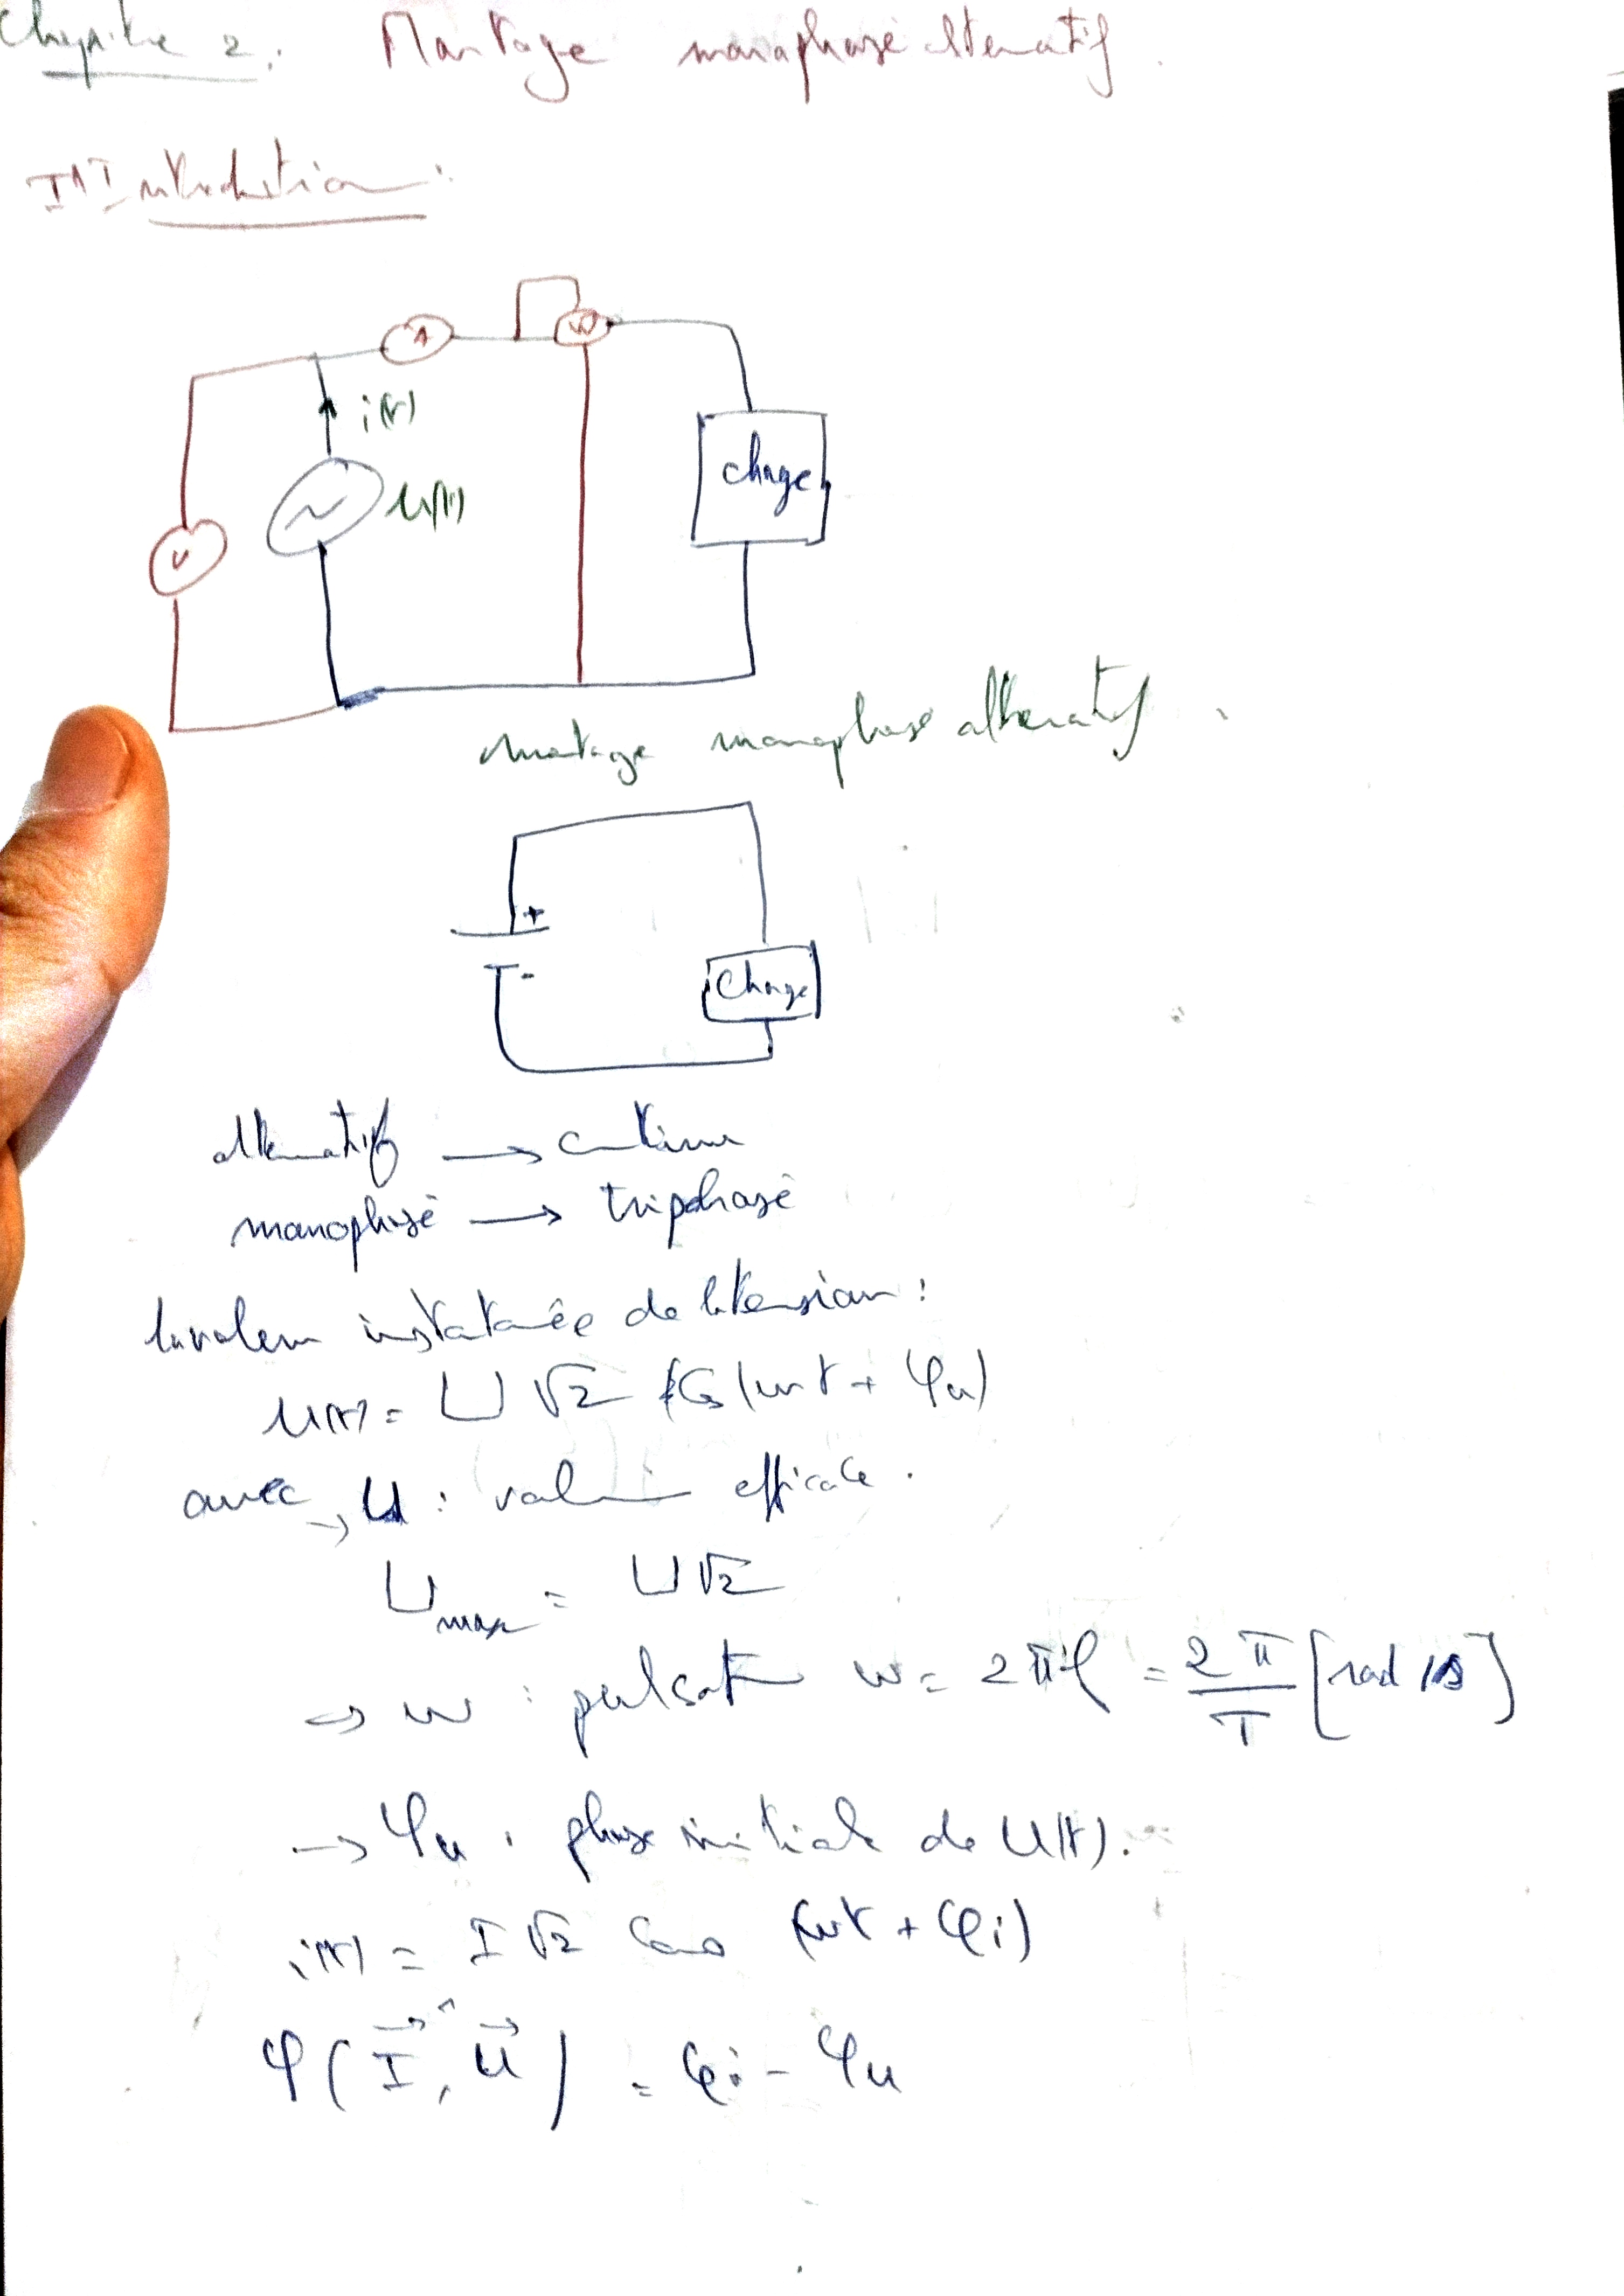 Chapitre 2: Montage monophasé alternatif.
I) Introduction:
A
W
i(t)
charge
u(t)
V
montage monophasé alternatif.
+
-
charge
alternatif → continu
monophasé → triphasé
la valeur instantanée de la tension:
u(t) = U √2 cos(wt + φu)
avec → U : valeur efficace.
Umax = U√2
→ w : pulsation w = 2πf = 2π/T [rad/s]
→ φu : phase initiale de u(t).
i(t) = I √2 cos (wt + φi)
φ(I, u) = φi - φu